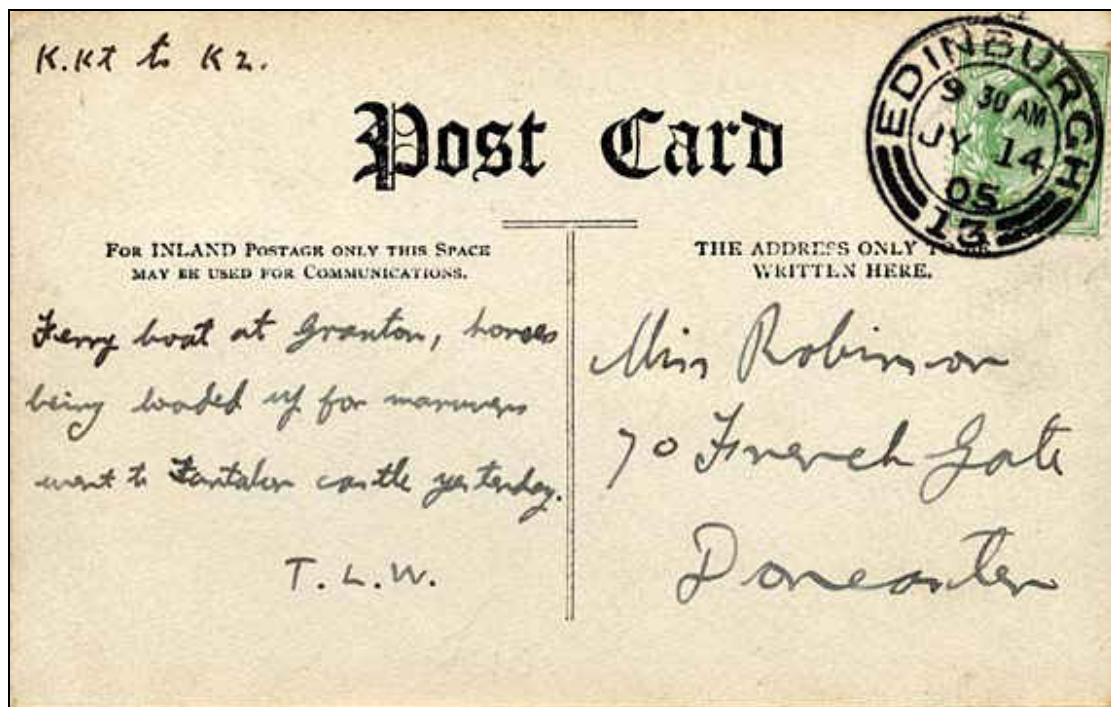 K.Kt to K2.
Post Card
EDINBURGH
9 30 AM
JY 14
05
13
FOR INLAND POSTAGE ONLY THIS SPACE
MAY BE USED FOR COMMUNICATIONS.
THE ADDRESS ONLY TO BE
WRITTEN HERE.
Ferry boat at Granton, horses
being loaded up for manuvers
went to Tantalon castle yesterday.
T. L. W.
Miss Robinson
70 French Gate
Doncaster